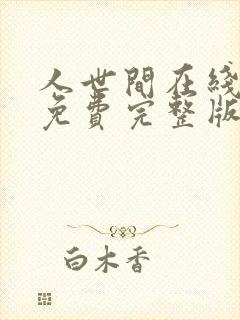 人世間在綫
免費完整版
白木香